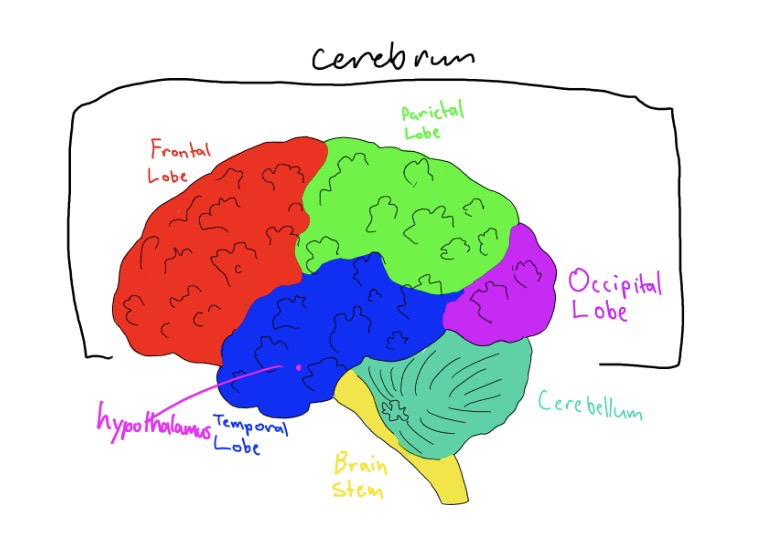 cerebrum
Parietal
Lobe
Frontal
Lobe
Occipital
Lobe
Cerebellum
hypothalamus
Temporal
Lobe
Brain
Stem